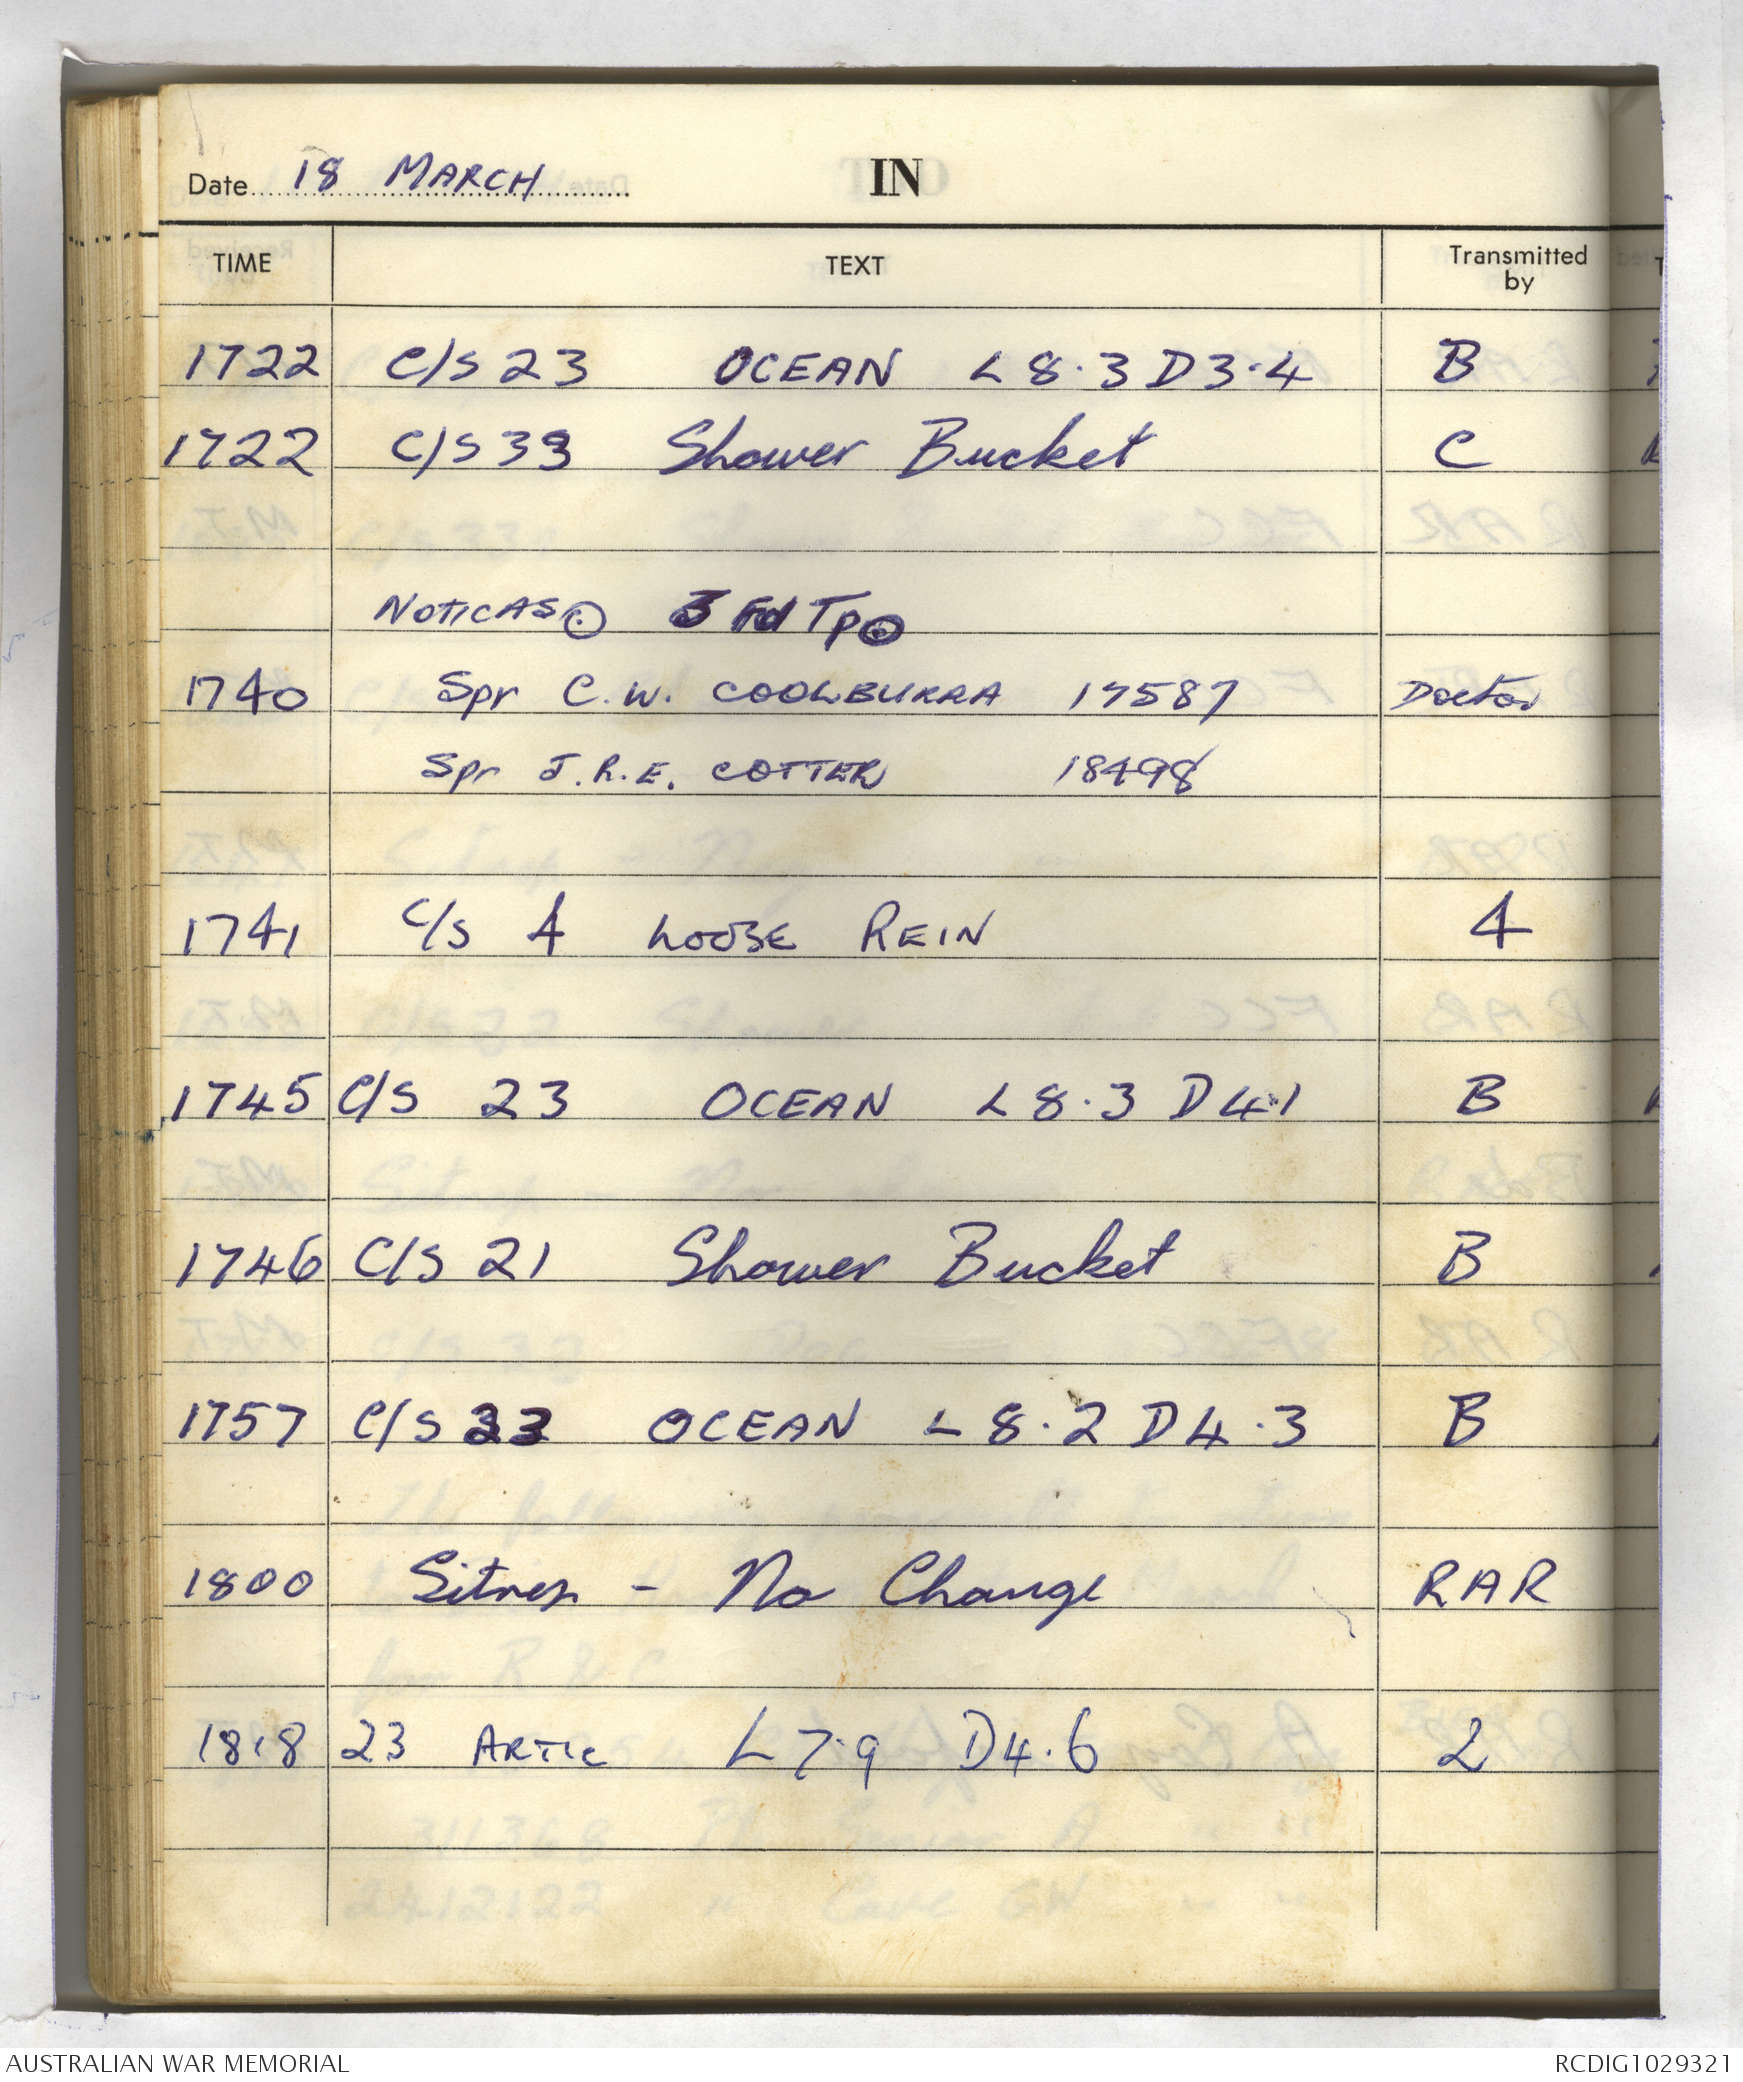 Date 18 MARCH
IN
TIME TEXT Transmitted by
1722 C/S 23 OCEAN L 8.3 D 3.4 B
1722 C/S 33 Shower Bucket C
NOTICAS 3 Fd Tp
1740 Spr C.W. COOLBURRA 17587 Doctor
Spr J.R.E. COTTER 18498
1741 C/S 4 LOOSE REIN 4
1745 C/S 23 OCEAN L 8.3 D 4.1 B
1746 C/S 21 Shower Bucket B
1757 C/S 23 OCEAN L 8.2 D 4.3 B
1800 Sitrep - No Change RAR
1818 23 ARTIC L 7.9 D 4.6 2
AUSTRALIAN WAR MEMORIAL
RCDIG1029321